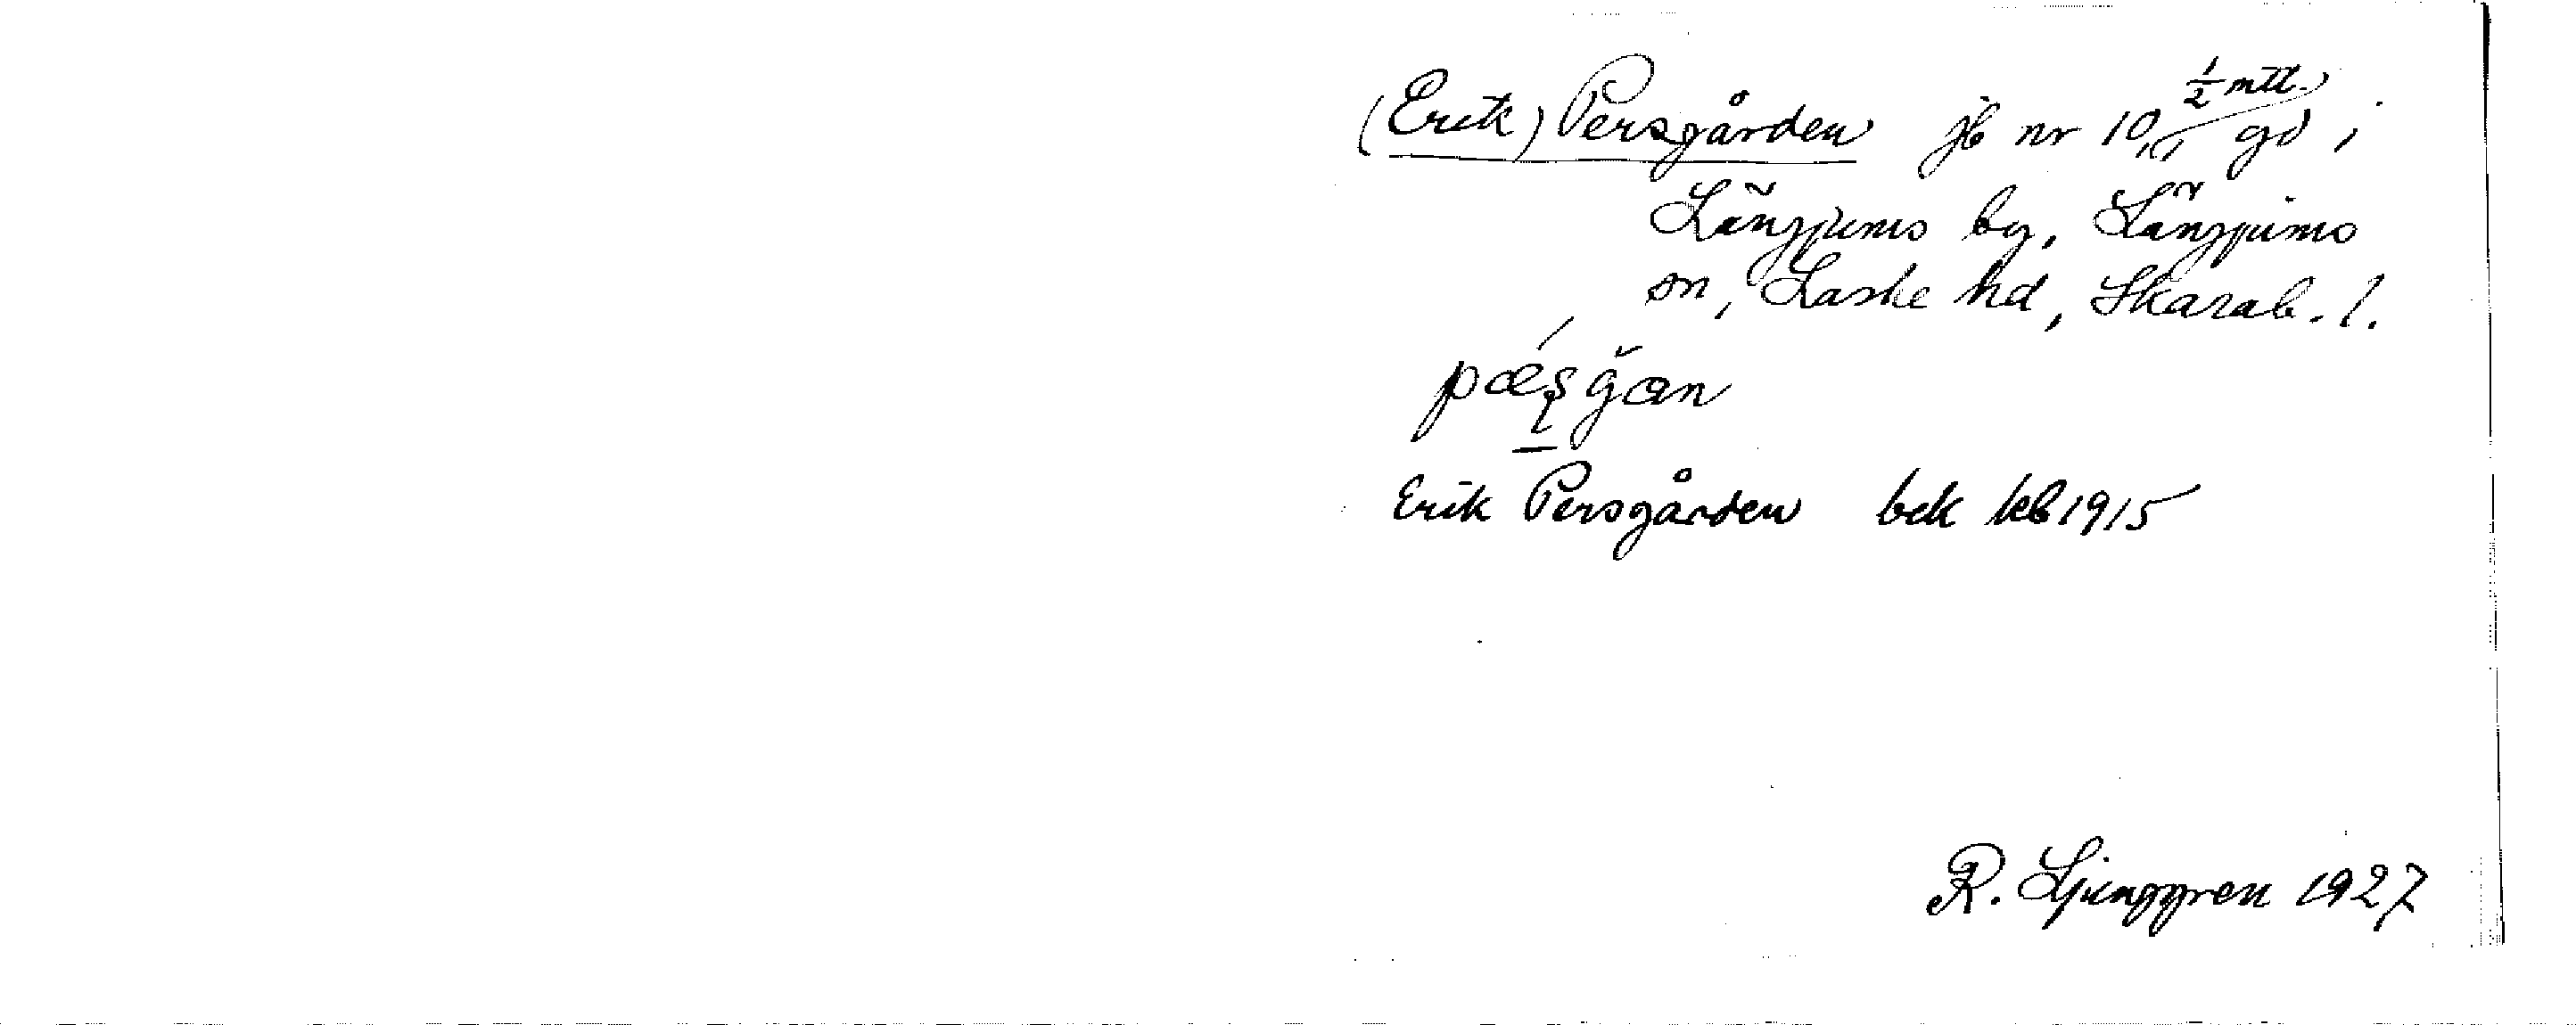 (Erik) Persgården jb nr 10, 1/2 mtl. gd i
Längjums by, Längjums
sn, Laske hd, Skarab. l.
pǽ̹ʂğan
Erik Persgården bek kb 1915
R. Ljunggren 1927